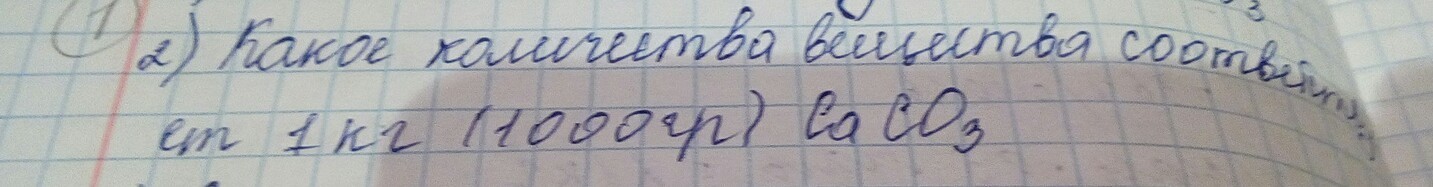 1
2) Какое количества вещества соответству
ет 1 кг (1000гр) CaCO3